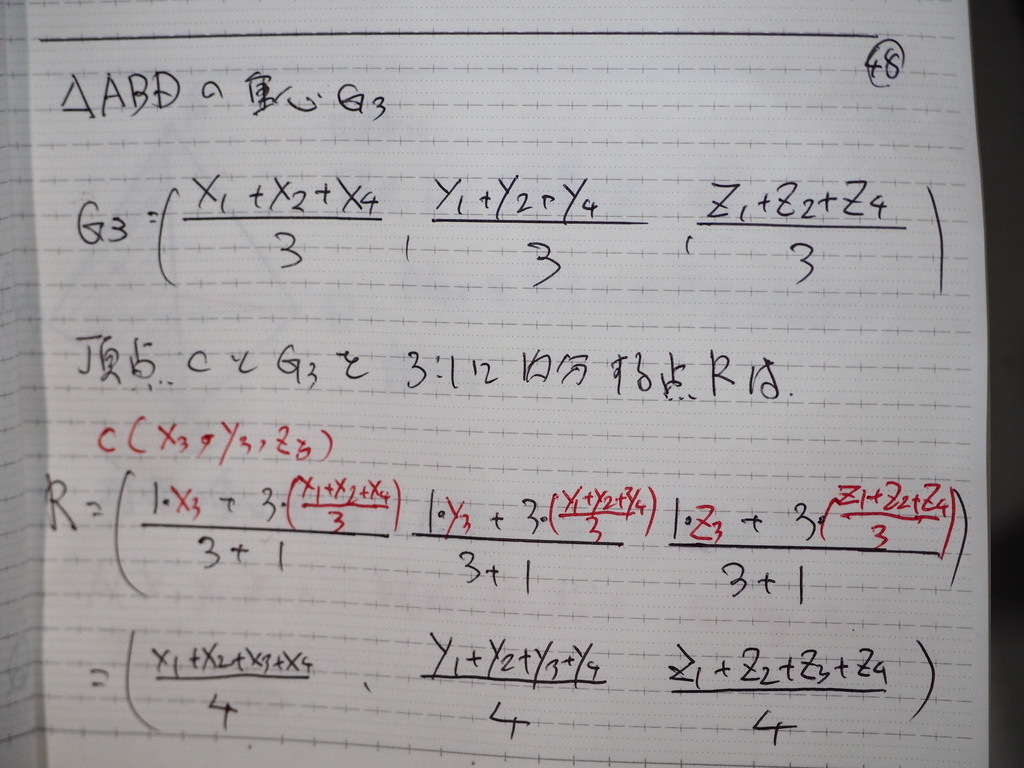 48
△ABDの重心G₃
G₃ = ( (x₁+x₂+x₄)/3 , (y₁+y₂+y₄)/3 , (z₁+z₂+z₄)/3 )
頂点CとG₃を3:1に内分する点Rは.
C(x₃,y₃,z₃)
R = ( (1・x₃ + 3・((x₁+x₂+x₄)/3))/(3+1) (1・y₃ + 3・((y₁+y₂+y₄)/3))/(3+1) (1・z₃ + 3・((z₁+z₂+z₄)/3))/(3+1) )
= ( (x₁+x₂+x₃+x₄)/4 、 (y₁+y₂+y₃+y₄)/4 (z₁+z₂+z₃+z₄)/4 )